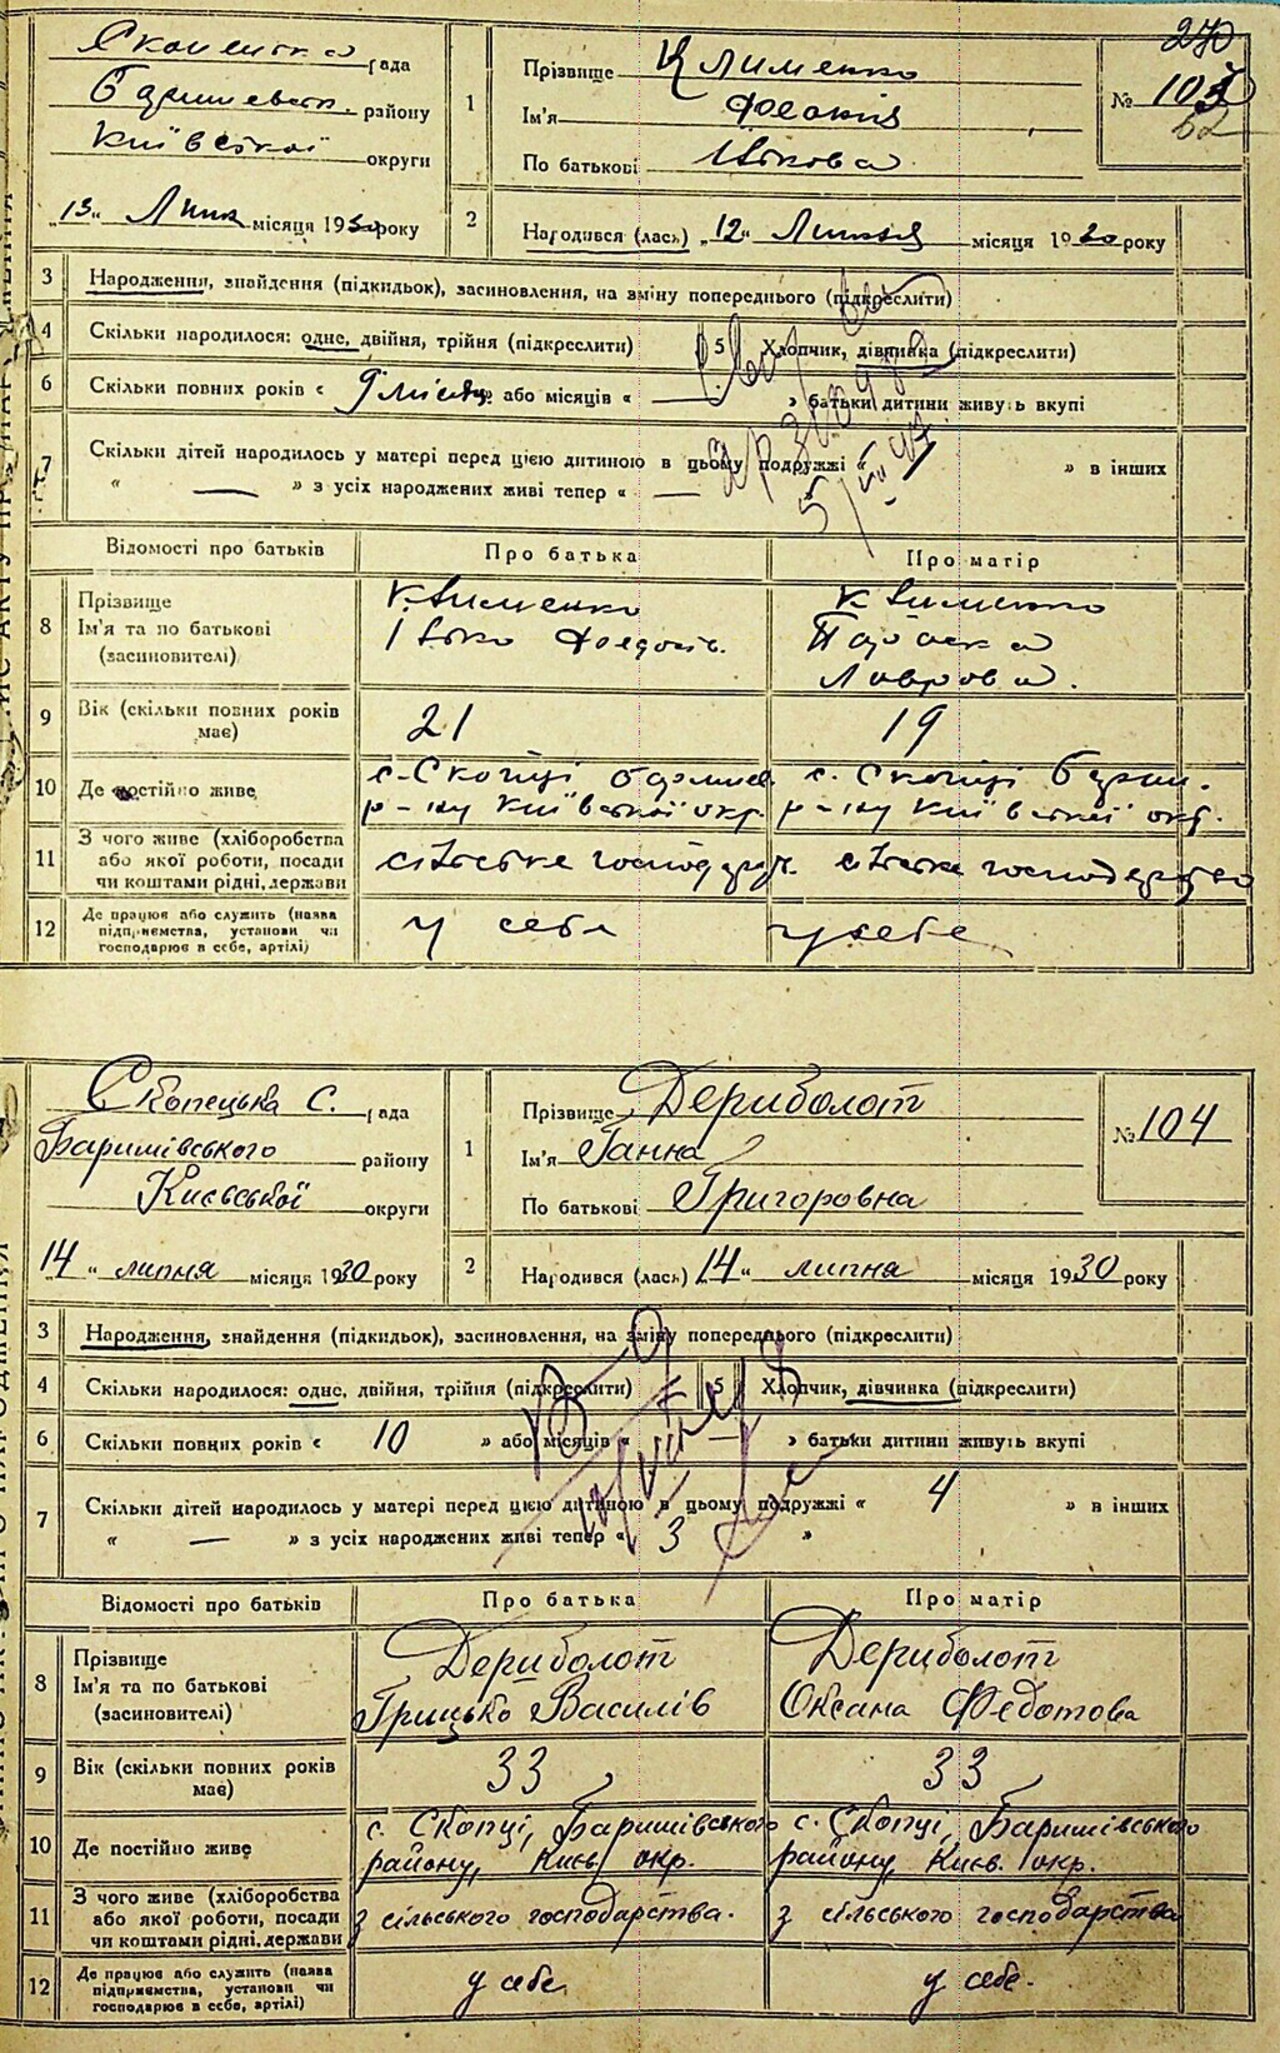 270
рада
району
Київської округи
"13" Липн місяця 1930 року
1
Прізвище Клименко
Ім'я
По батькові
№ 103
62
2
Народився (лась) "12" Липня місяця 1930 року
3 Народження, знайдення (підкидьок), засиновлення, на зміну попереднього (підкреслити)
4 Скільки народилося: одне, двійня, трійня (підкреслити) 5 Хлопчик, дівчинка (підкреслити)
6 Скільки повних років « 9 місяц. » або місяців « — » батьки дитини живуть вкупі
7 Скільки дітей народилось у матері перед цією дитиною в цьому подружжі « » в інших
« — » з усіх народжених живі тепер « —
Відомості про батьків Про батька Про матір
8 Прізвище
Ім'я та по батькові
(засиновителі)
Клименко
Клименко
Лаврова.
9 Вік (скільки повних років має)
21 19
10 Де постійно живе
с. Скопці
р-ну Київської окр.
с. Скопці Бариш.
р-ну Київської окр.
11 З чого живе (хліборобства
або якої роботи, посади
чи коштами рідні, держави
сільське господар.
сільське господарство
12 Де працює або служить (назва
підприємства, установи чи
господарює в себе, артілі)
у себе у себе
Скопецька С. рада
Баришівського району
Києвської округи
"14" липня місяця 1930 року
1
Прізвище Дериболот
Ім'я Ганна
По батькові Григоровна
№ 104
2
Народився (лась) "14" липна місяця 1930 року
3 Народження, знайдення (підкидьок), засиновлення, на зміну попереднього (підкреслити)
4 Скільки народилося: одне, двійня, трійня (підкреслити) 5 Хлопчик, дівчинка (підкреслити)
6 Скільки повних років « 10 » або місяців « — » батьки дитини живуть вкупі
7 Скільки дітей народилось у матері перед цією дитиною в цьому подружжі « 4 » в інших
« — » з усіх народжених живі тепер « 3 »
Відомості про батьків Про батька Про матір
8 Прізвище
Ім'я та по батькові
(засиновителі)
Дериболот
Грицько Василів
Дериболот
Оксана Федотова
9 Вік (скільки повних років має)
33 33
10 Де постійно живе
с. Скопці, Баришівського
району, Києв. окр.
с. Скопці, Баришівського
району, Києв. окр.
11 З чого живе (хліборобства
або якої роботи, посади
чи коштами рідні, держави
з сільського господарства.
з сільського господарства
12 Де працює або служить (назва
підприємства, установи чи
господарює в себе, артілі)
у себе. у себе.